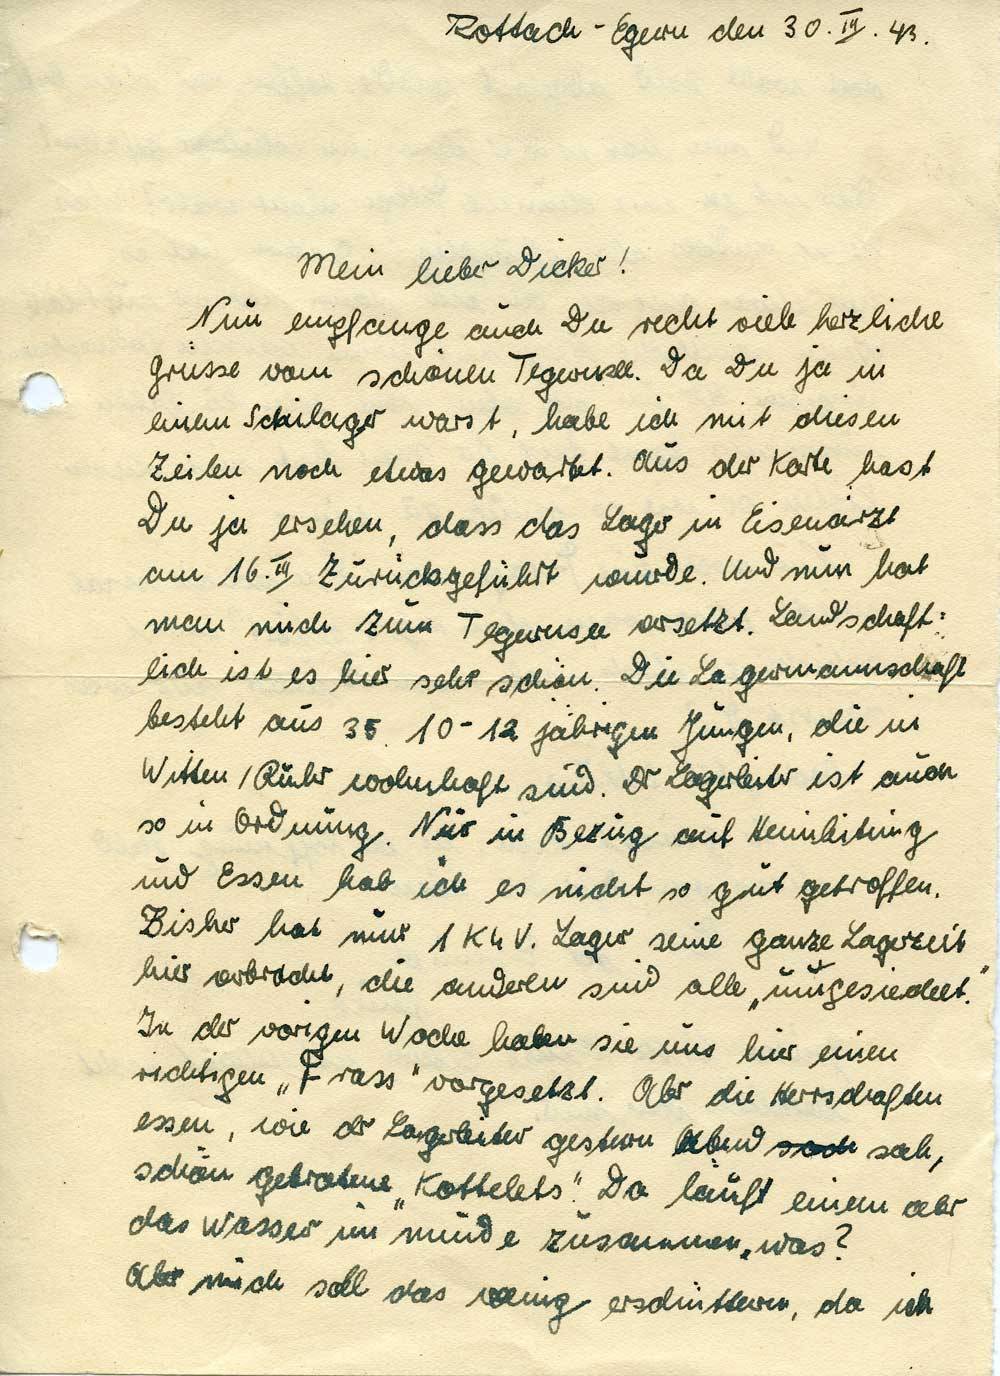 Rottach-Egern den 30.III.43.
Mein lieber Dicker!
Nun empfange auch Du recht viele herzliche
Grüsse vom schönen Tegernsee. Da Du ja in
einem Schilager warst, habe ich mit diesen
Zeilen noch etwas gewartet. Aus der Karte hast
Du ja ersehen, dass das Lager in Eisenärzt
am 16.III zurückgeführt wurde. Und nun hat
man mich zum Tegernsee versetzt. Landschaft-
lich ist es hier sehr schön. Die Lagermannschaft
besteht aus 35 10-12 jährigen Jungen, die in
Witten/Ruhr wohnhaft sind. Der Lagerleiter ist auch
so in Ordnung. Nur in Bezug auf Heimleitung
und Essen hab ich es nicht so gut getroffen.
Bisher hat nur 1 KLV. Lager seine ganze Lagerzeit
hier verbracht, die anderen sind alle „umgesiedelt."
In der vorigen Woche haben sie uns hier einen
richtigen „Frass" vorgesetzt. Aber die Herrschaften
essen, wie der Lagerleiter gestern Abend sah,
schön gebratene „Kottelets". Da läuft einem aber
das Wasser im Munde zusammen, was?
Aber mich soll das wenig erschüttern, da ich